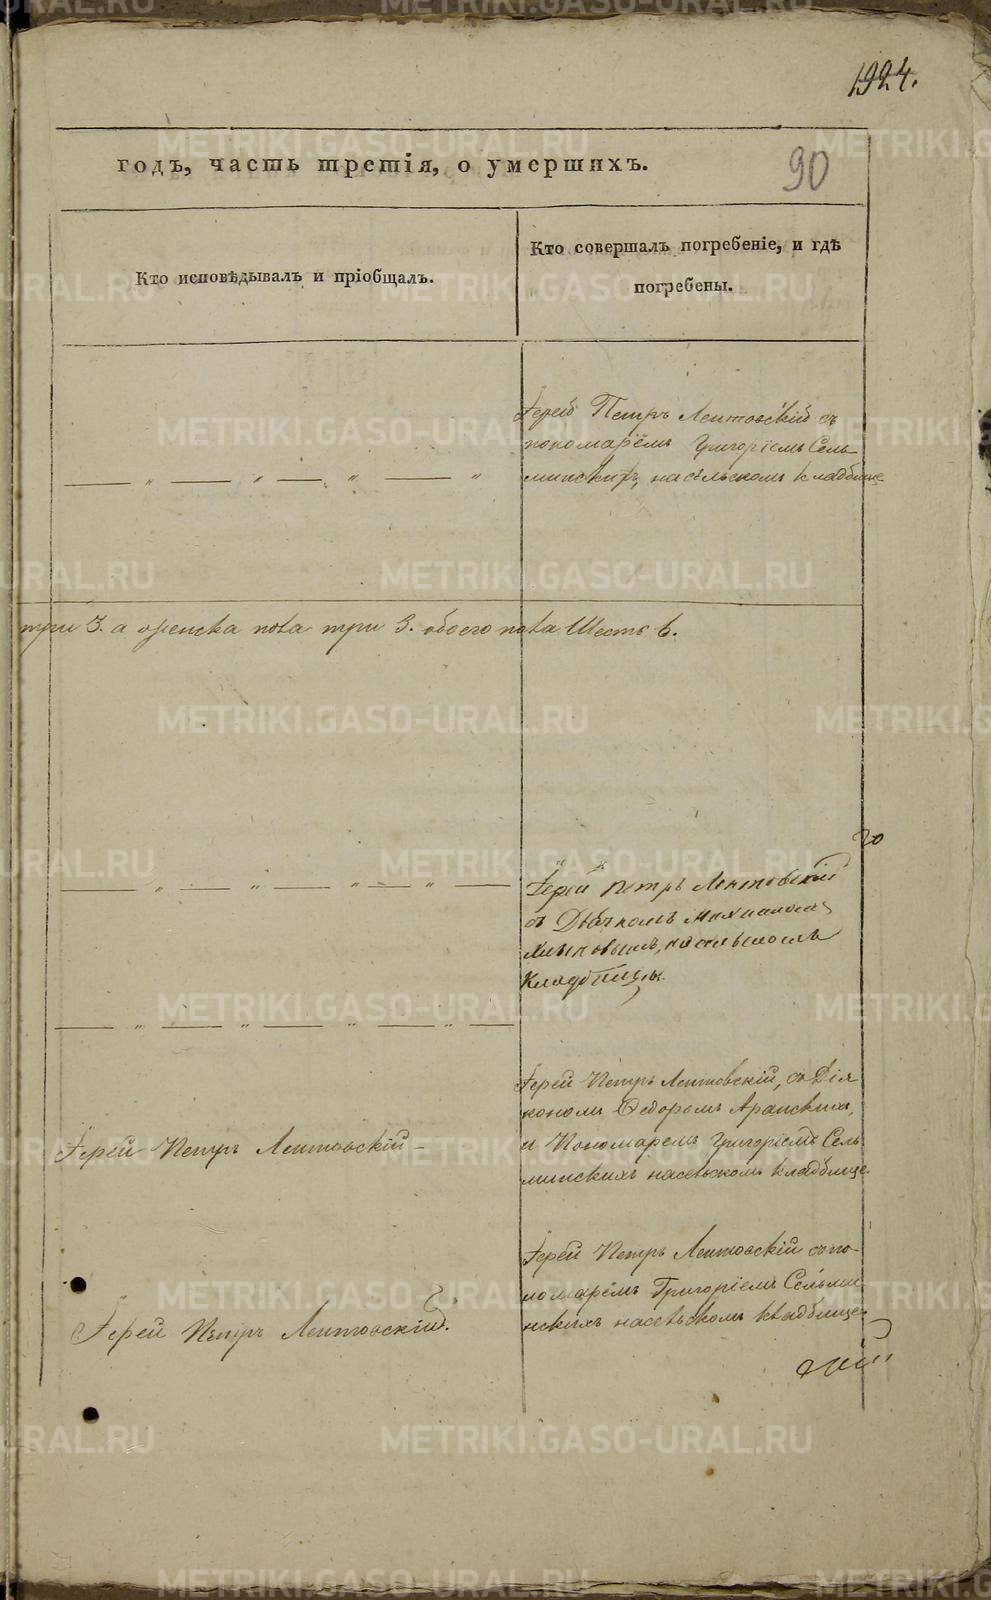 1924.
90
годъ, часть третія, о умершихъ.
Кто исповѣдывалъ и пріобщалъ.
Кто совершалъ погребеніе, и гдѣ
погребены.
Іерей Петръ Лентовскій съ
пономарёмъ Григоріемъ Сель-
минскихъ, на сѣльскомъ кладбище
три 3. а женска пола три 3. обоего пола Шесть 6.
Іерей Петръ Лентовскій
съ Дьячкомъ Михаиломъ
на сельскомъ
Кладбищѣ.
Іерей Петръ Лентовскій, съ Дія
кономъ Ѳедоромъ
Іерей Петръ Лентовскій -
и Пономаремъ Григоріемъ Сель
минскихъ на сельскомъ кладбище.
Іерей Петръ Лентовскій съ по-
номарёмъ Григоріемъ Сельми
Іерей Петръ Лентовскій.
нскихъ на сельскомъ кладбище.
METRIKI.GASO-URAL.RU